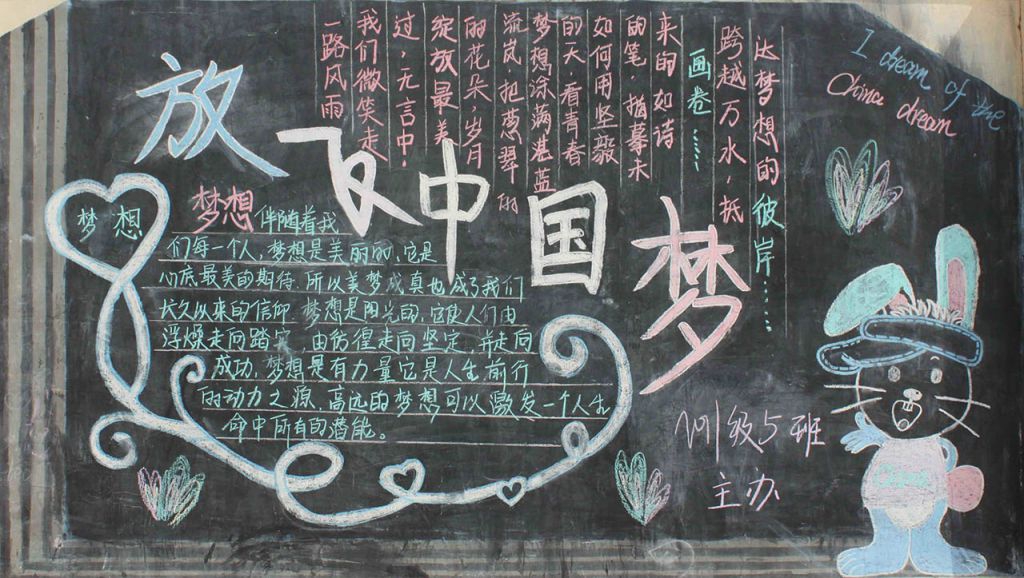 放飞中国梦
一路风雨
我们微笑走
过,无言中!
绽放最美
的花朵,岁月
流岚,把葱翠的
梦想涂满湛蓝
的天,看青春
如何用坚毅
的笔,描摹未
来的如诗
画卷……
跨越万水,抵
达梦想的彼岸……
I dream of the
China dream
梦想
梦想伴随着我
们每一个人,梦想是美丽的,它是
心底最美的期待,所以美梦成真也成了我们
长久以来的信仰 梦想是阳光的,它使人们由
浮燥走向踏实,由彷徨走向坚定,并走向
成功,梦想是有力量它是人生前行
的动力之源,高远的梦想可以激发一个人生
命中所有的潜能。
级5班
主办